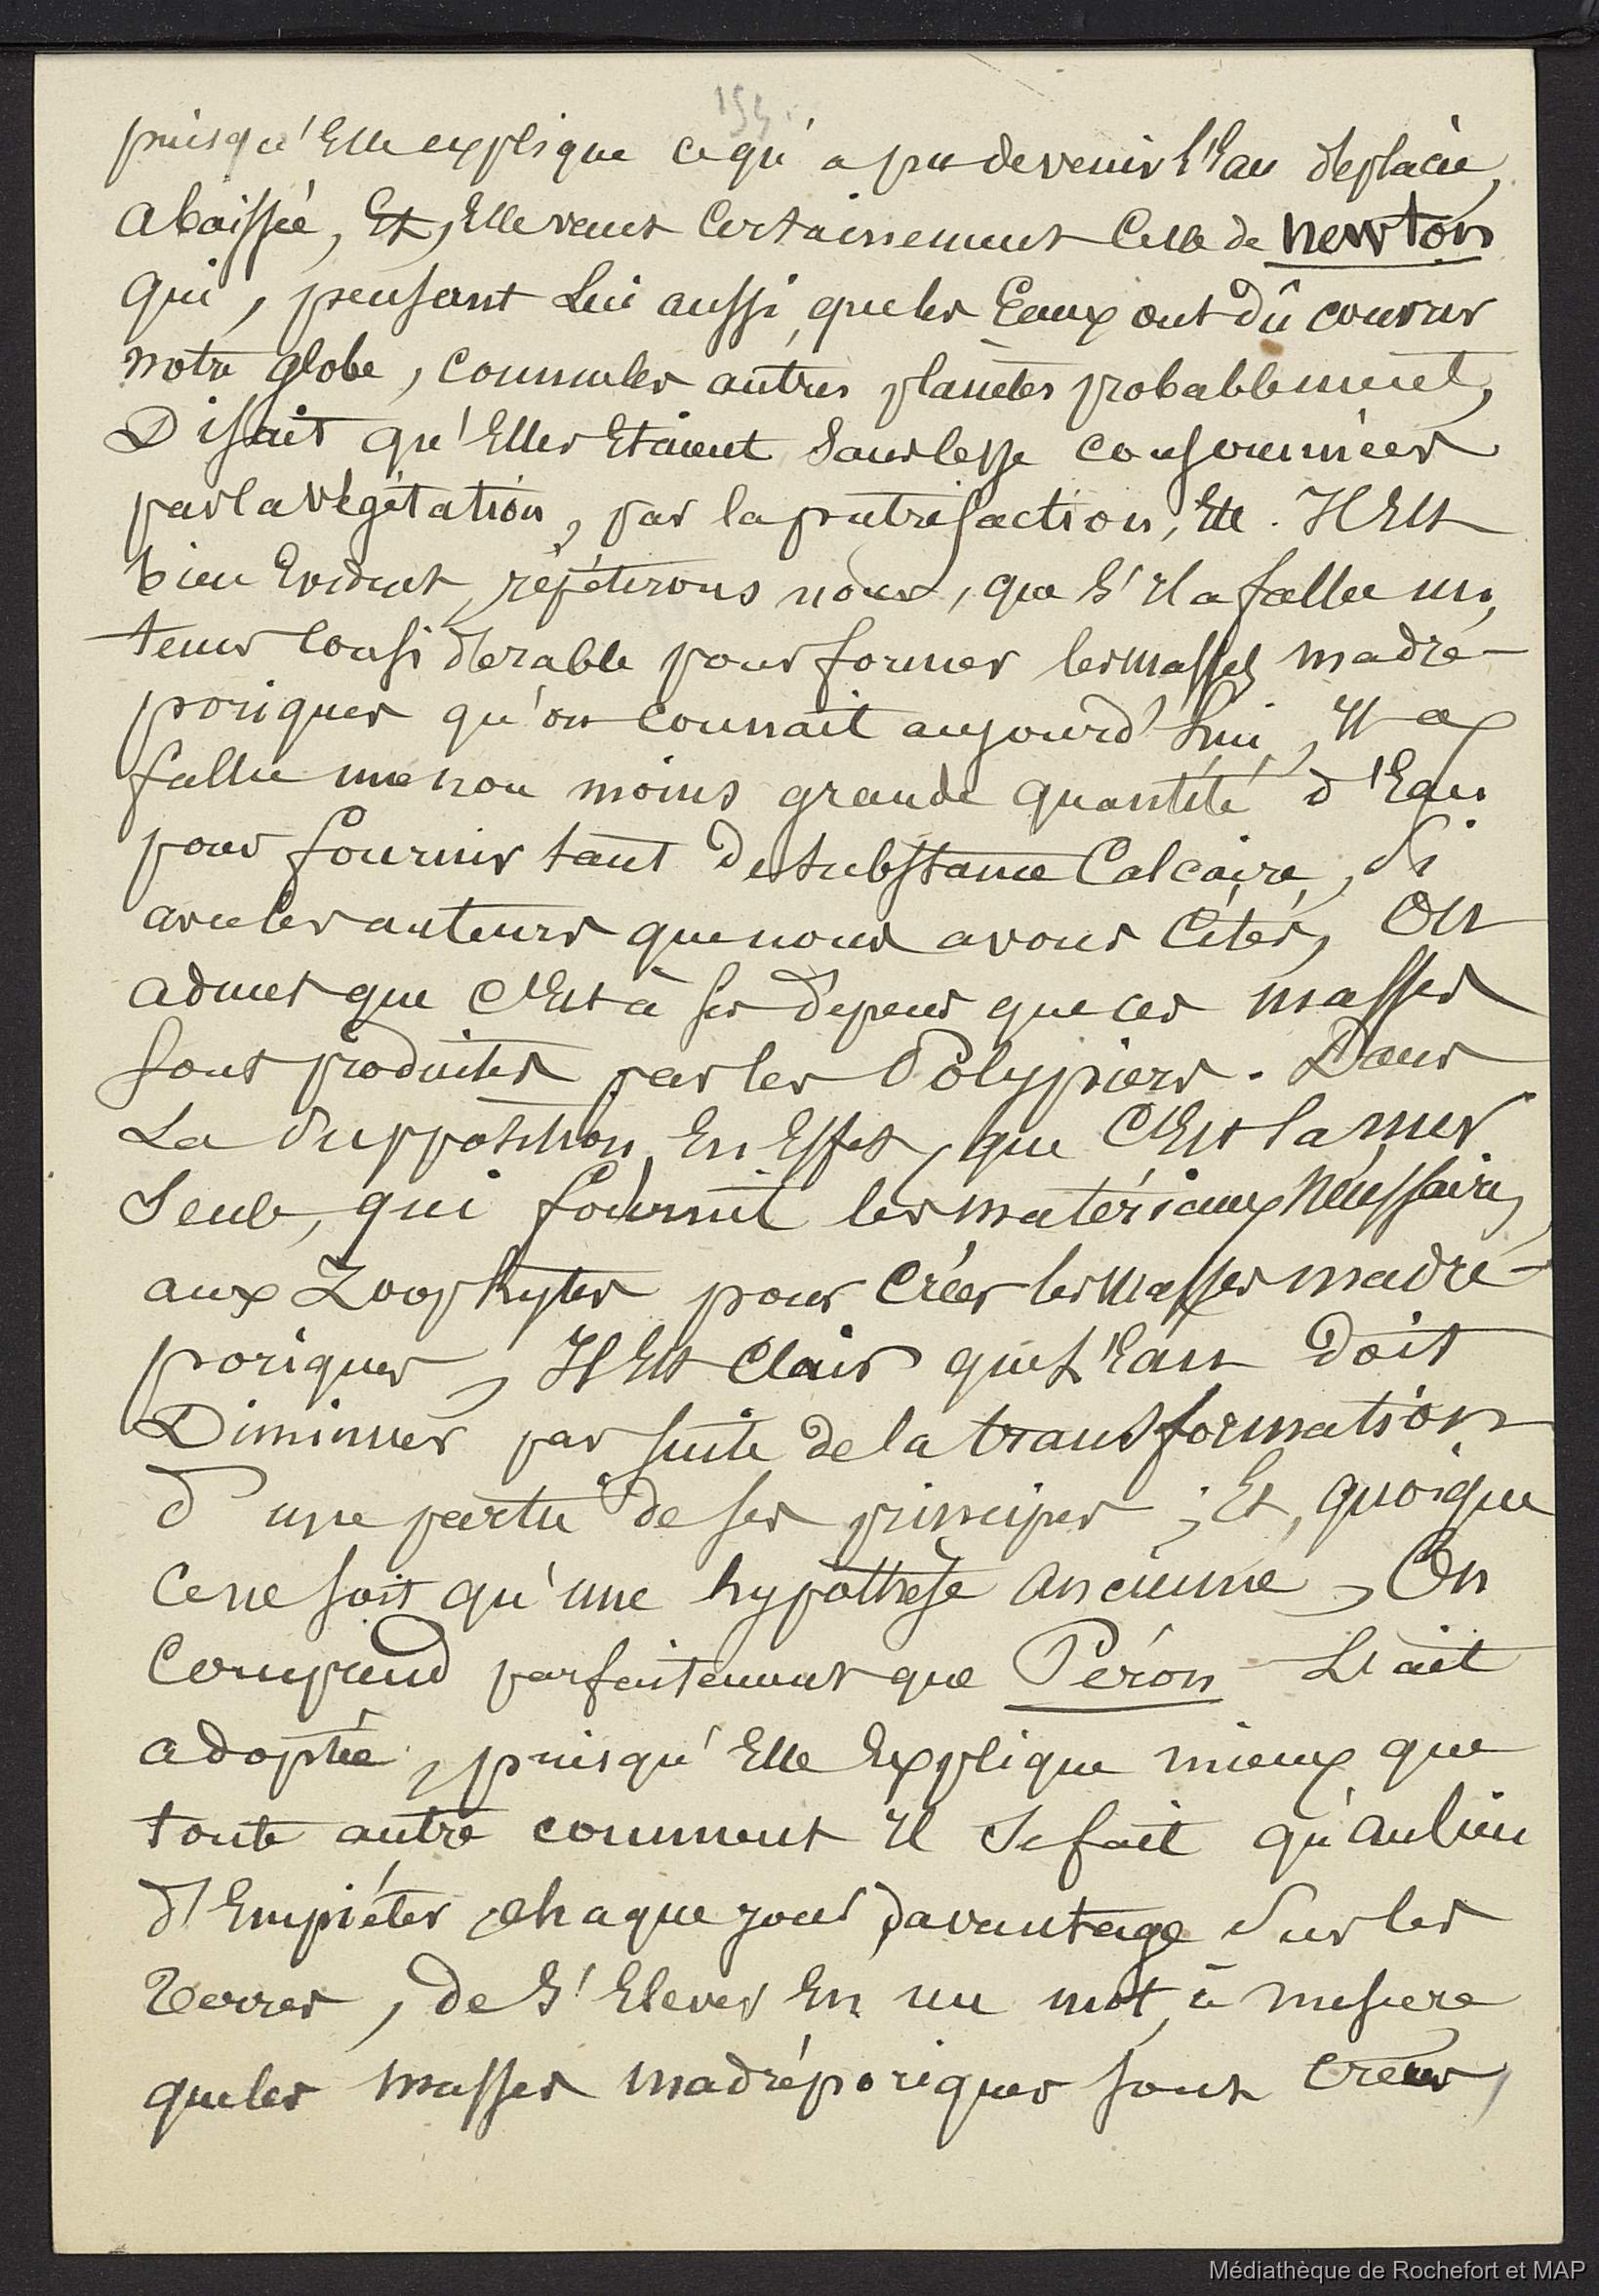 154.
puisqu'Elle explique ce qu'a pu devenir l'Eau déplacée,
abaissée, Et, Elle vaut Certainement Celle de Newton
qui, pensant Lui aussi, que les Eaux ont dû couvrir
notre globe, comme les autres planètes probablement,
Disait qu'Elles Etaient Sans Cesse consommées
par la végétation, par la putréfaction, Etc. Il Est
bien Evident, répéterons nous, que S'il a fallu un,
tems Considérable pour former les masses madré-
poriques qu'on Connait aujourd'hui, Il a
fallu une non moins grande quantité d'Eau
pour fournir tant de substance Calcaire, Si
avec les auteurs que nous avons Cités, On
admet que C'Est à ses dépens que ces masses
sont produites par les Polypiers. Dans
La Supposition, En Effet, que C'Est la mer
Seule, qui fournit les matériaux Nécessaires,
aux Zoophytes pour Créer les Masses madré-
poriques, Il Est Clair que L'Eau Doit
Diminuer par suite de la transformation
d'une partie de ses principes ; Et, quoique
Ce ne soit qu'une hypothèse ancienne, On
Comprend parfaitement que Péron L'ait
adoptée, puisqu'Elle Explique mieux que
toute autre comment Il Se fait qu'au lieu
d'Empiéter chaque jour davantage Sur les
Terres, de S'Elever En un mot, à mesure
que les masses madréporiques sont Créées,
Médiathèque de Rochefort et MAP